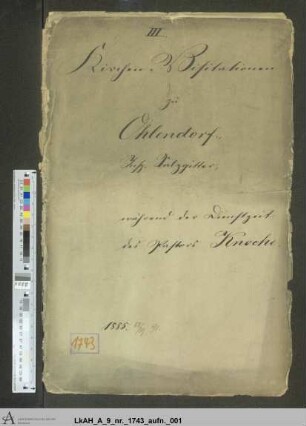 III.
Kirchen-Visitationen
zu
Ohlendorf,
Insp. Salzgitter,
während der Dienstzeit
des Pastors Knoche
1885.
1743
LkAH_A_9_nr._1743_aufn._001